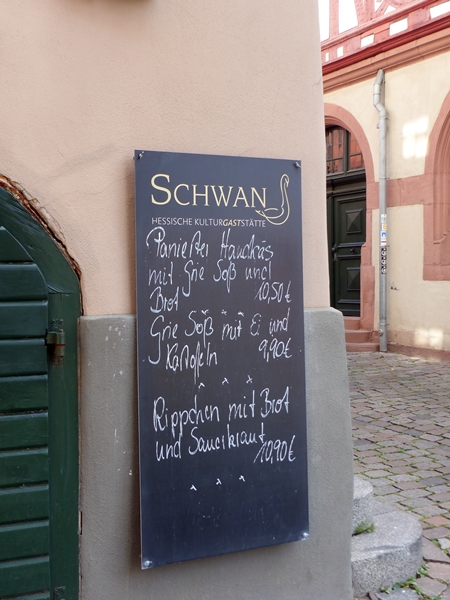 SCHWAN
HESSISCHE KULTURGASTSTÄTTE
Panierter Handkäs
mit Grie Soß und
Brot 10,50€
Grie Soß mit Ei und
Kartoffeln 9,90€
Rippchen mit Brot
und Sauerkraut
10,90€